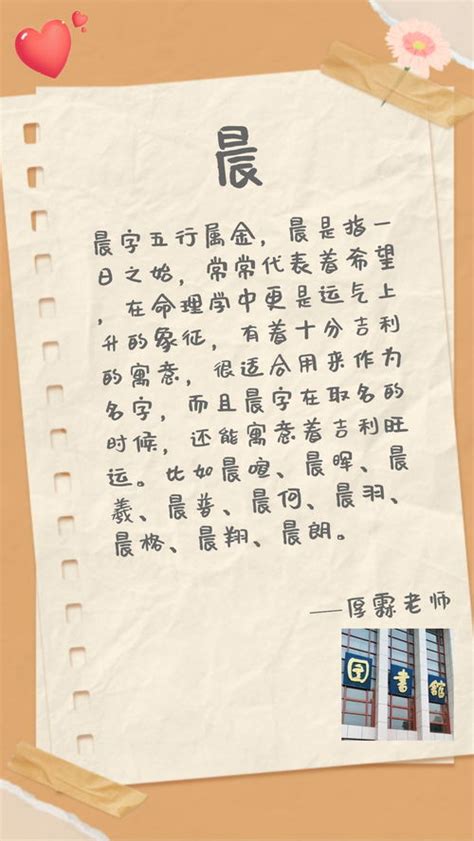 晨
晨字五行属金，晨是指一
日之始，常常代表着希望
，在命理学中更是运气上
升的象征，有着十分吉利
的寓意，很适合用来作为
名字，而且晨字在取名的
时候，还能寓意着吉利旺
运。比如晨喧、晨晖、晨
羲、晨誉、晨何、晨羽、
晨格、晨翔、晨朗。
——厚霖老师
図書館